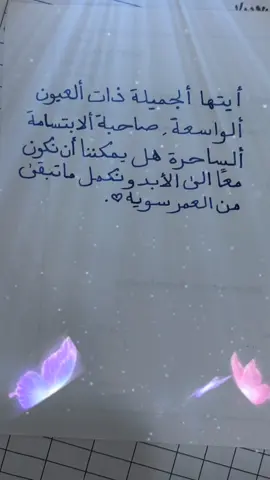 أيتها ألجميلة ذات ألعيون
ألواسعة, صاحبة ألابتسامة
ألساحرة هل يمكننا أن نكون
معًا الى الأبد و نكمل ماتبقى
من العمر سويه ♡.